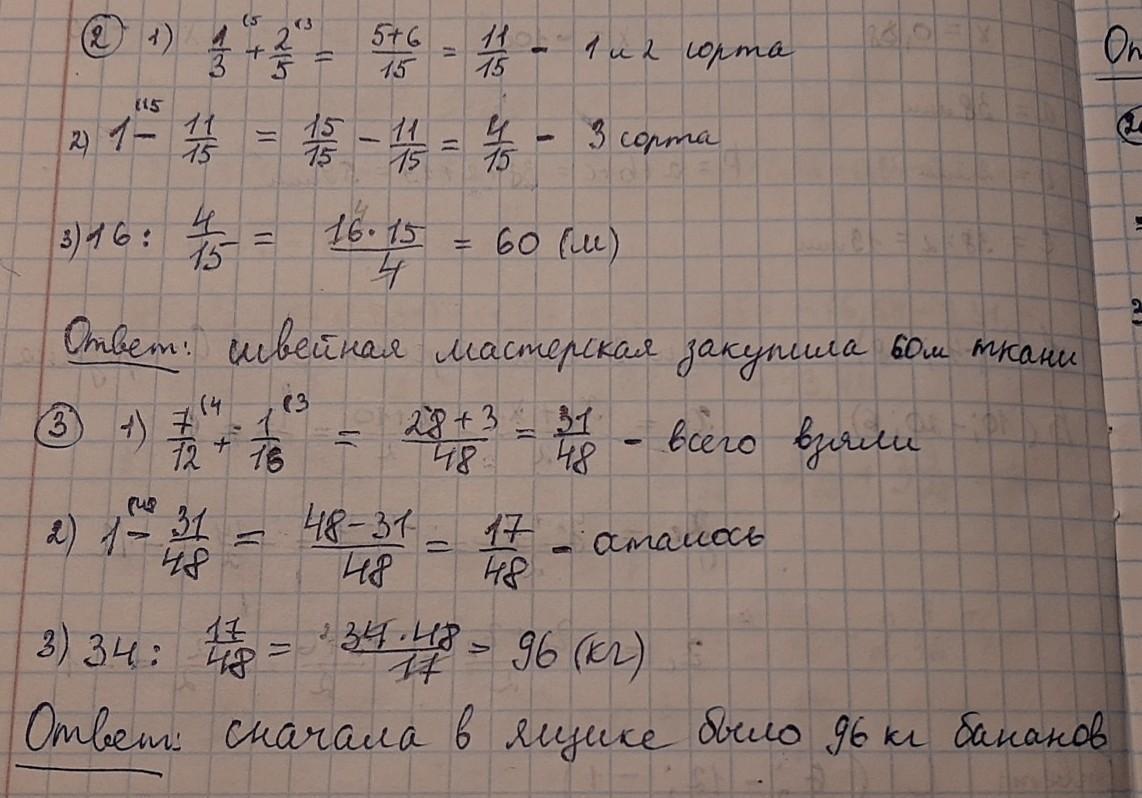 ② 1) 1/3 (5 + 2/5 (3 = (5+6)/15 = 11/15 - 1 и 2 сорта
2) 1 (15 - 11/15 = 15/15 - 11/15 = 4/15 - 3 сорта
3) 16 : 4/15 = (16·15)/4 = 60 (м)
Ответ: швейная мастерская закупила 60м ткани
③ 1) 7/12 (4 + 1/16 (3 = (28+3)/48 = 31/48 - всего взяли
2) 1 (48 - 31/48 = (48-31)/48 = 17/48 - осталось
3) 34 : 17/48 = (34·48)/17 = 96 (кг)
Ответ: сначала в ящике было 96 кг бананов
Оп